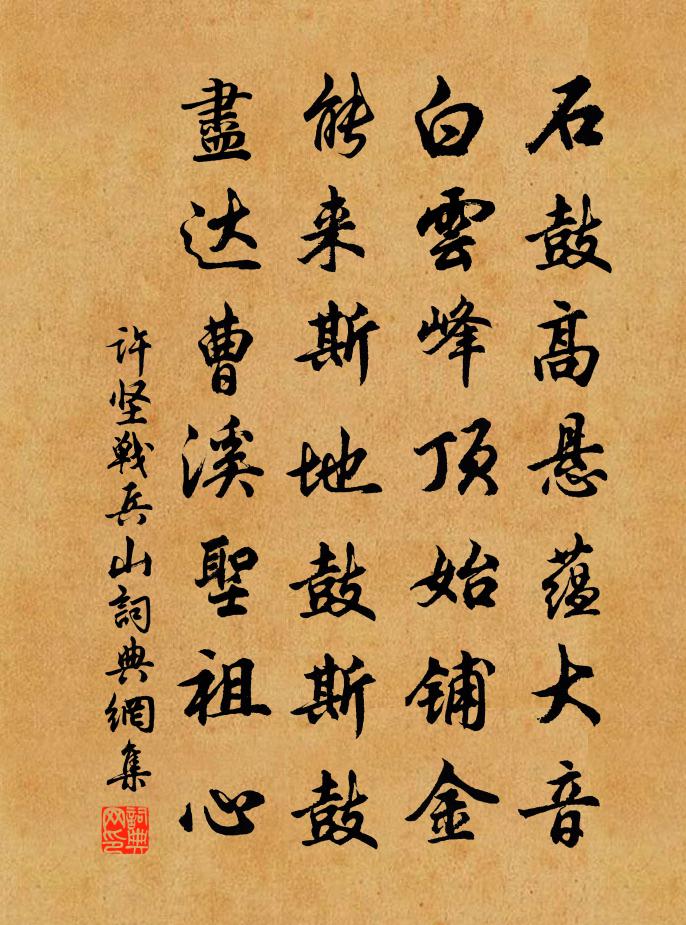 石鼓高悬蕴大音
白雲峰顶始铺金
能来斯地鼓斯鼓
盡达曹溪聖祖心
许坚戰兵山詞典網集
詞典网印